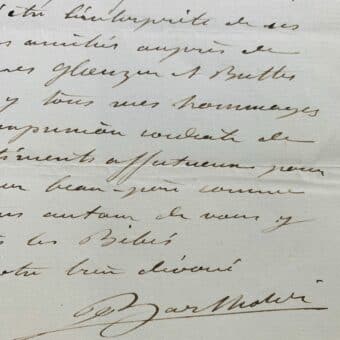 être l'interprète de ses
amitiés auprès de
mes Glaenzer et Buttes
y tous mes hommages
cordiale de
timents affectueux pour
beau père comme
autour de vous y
les Bébés
votre bien dévoué
Bartholdi